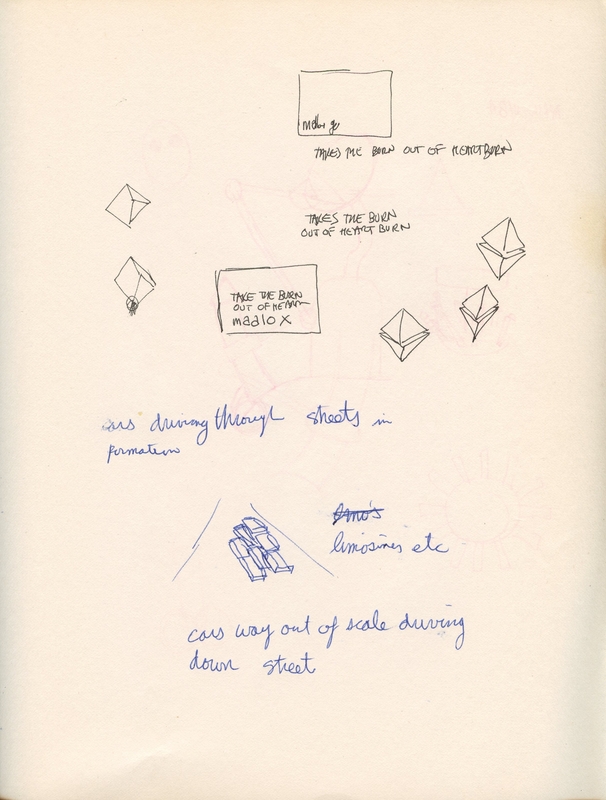 TAKES THE BURN OUT OF HEARTBURN
TAKES THE BURN
OUT OF HEART BURN
TAKE THE BURN
OUT OF HEART
maalox
cars driving through streets in
formation
limo's
limosines etc
cars way out of scale driving
down street